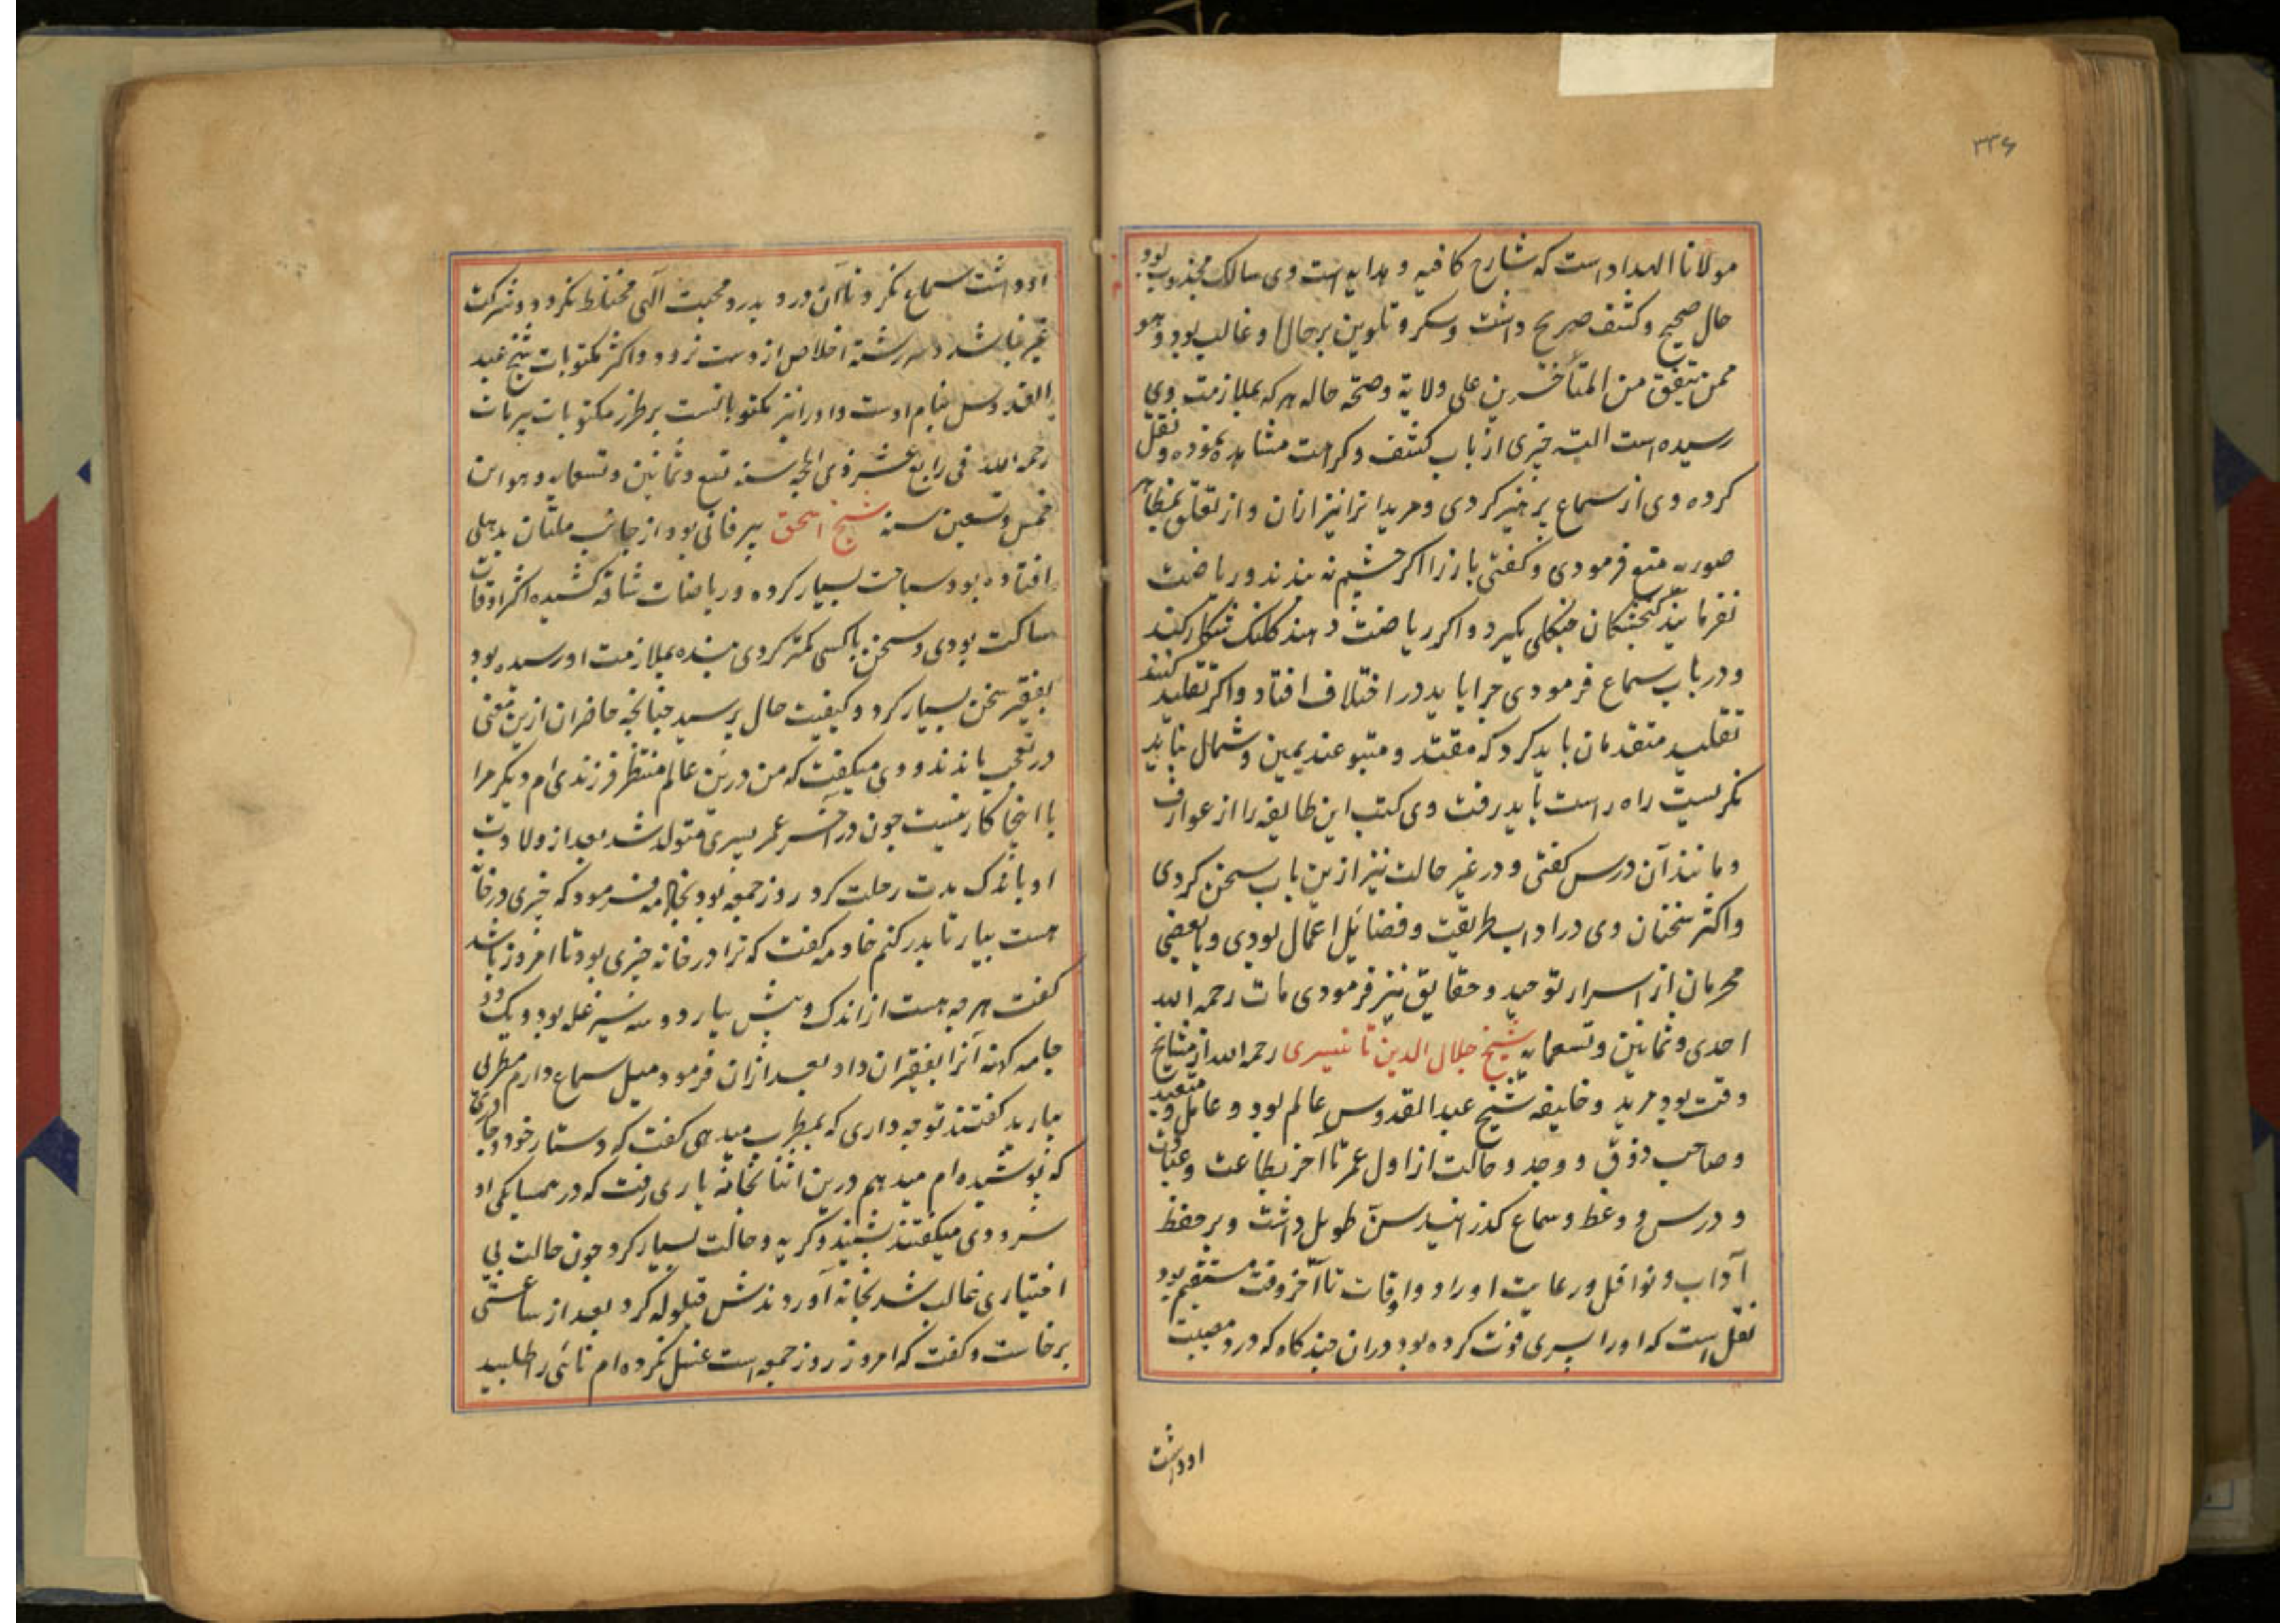 ۳۳۶
مولانا الهداد است که شارح کافیه و هدایه است وی سالک مجذوب بود
حال صحیح و کشف صریح داشت و سکر و تلوین بر حال او غالب بود و هو
ممن یتفق من المتأخرین علی ولایة وصحة حاله هرکه بملازمت وی
رسیده است البته چیزی از باب کشف و کرامت مشاهده نموده و نقل
کرده وی از سماع پرهیز کردی و مریدانرا نیز ازان و از تعلق بمظاهر
صوریه منع فرمودی و گفتی باز را اگر چشم نه بندند و ریاضت
نفرمایند گنجشکان جنگلی بگیرد و اگر ریاضت دهند کلنگ شکار کند
و در باب سماع فرمودی چرا باید در اختلاف افتاد و اگر تقلید کنند
تقلید متقدمان باید کرد که مقتد و متبوعند یمین و شمال نباید
نگریست راه راست باید رفت وی کتب این طایفه را از عوارف
و مانند آن درس گفتی و در غیر حالت نیز ازین باب سخن کردی
و اکثر سخنان وی در اداب طریقت و فضائل اعمال بودی و با بعضی
محرمان از اسرار توحید و حقایق نیز فرمودی مات رحمه الله
احدی و ثمانین و تسعمایه شیخ جلال الدین تانیسری رحمه الله از مشایخ
وقت بود مرید و خلیفه شیخ عبد القدوس عالم بود و عامل و متعبد
و صاحب ذوق و وجد و حالت از اول عمر تا آخر بطاعت و عبادت
و درس و وعظ و سماع گذرانید سن طویل داشت و بر حفظ
آداب و نوافل و رعایت اوراد و اوقات تا آخر وقت مستقیم بود
نقل است که او را پسری فوت کرده بود دران چند گاه که درد مصیبت
او داشت
او داشت سماع نکرد تا آن درد بدرد محبت الهی مختلط نگردد و شرکت
غیر نباشد و سررشته اخلاص از دست نرود و اکثر مکتوبات شیخ عبد
القدوس بنام اوست و او را نیز مکتوباتست بر طرز مکتوبات پیر مات
رحمه الله فی رابع عشر ذی الحجه سنه تسع و ثمانین و تسعمایه و هو ابن
خمس و تسعین سنه شیخ اسحق پیر فانی بود از جانب ملتان بدهلی
افتاده بود سیاحت بسیار کرده و ریاضات شاقه کشیده اکثر اوقات
ساکت بودی و سخن با کسی کمتر کردی بنده بملازمت او رسیده بود
بفقیر سخن بسیار کرد و کیفیت حال پرسید چنانچه حاضران ازین معنی
در تعجب ماندند و وی میگفت که من درین عالم منتظر فرزندی ام دیگر مرا
با اینجا کار نیست چون در آخر عمر پسری متولد شد بعد از ولادت
او باندک مدت رحلت کرد روز جمعه بود بخادمه فرمود که چیزی در خانه
هست بیار تا بدر کنم خادمه گفت که ترا در خانه چیزی بود تا امروز باشد
گفت هرچه هست از اندک و بیش بیار دو سه سیر غله بود و یک دو
جامه کهنه آنرا بفقیران داد بعد ازان فرمود میل سماع دارم مطربی
بیارید گفتند تو چه داری که بمطرب میدهی گفت که دستار خود و جامه
که پوشیده ام میدهم درین اثنا بخانه یاری رفت که در همسایگی او
سرودی میگفتند بشنید و گریه و حالت بسیار کرد چون حالت بی
اختیاری غالب شد بخانه آوردندش قیلوله کرد بعد از ساعتی
برخاست و گفت که امروز روز جمعه است غسل نکرده ام نائی را طلبید